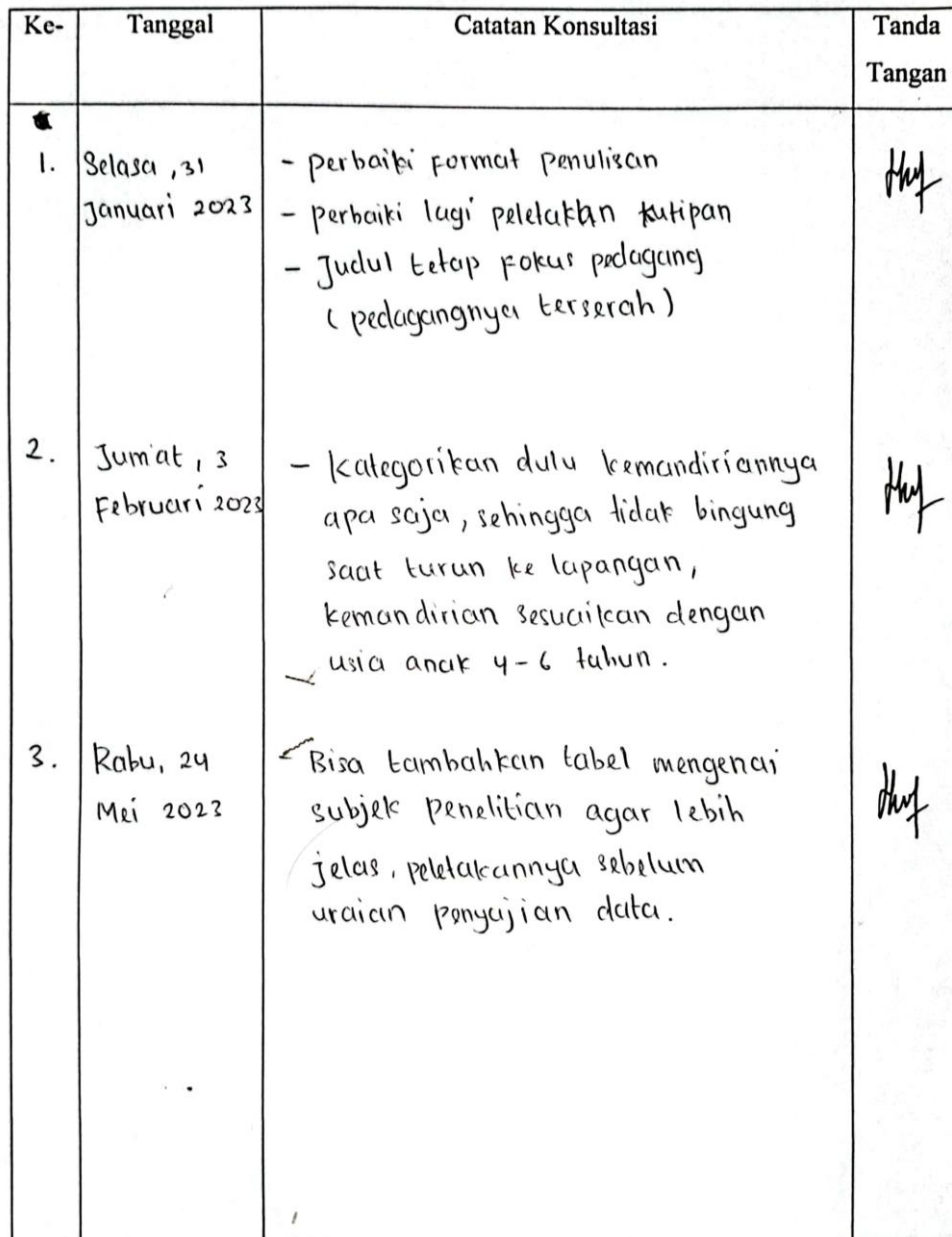 Ke- Tanggal Catatan Konsultasi Tanda
Tangan
1. Selasa, 31 - perbaiki format penulisan
Januari 2023 - perbaiki lagi peletakan kutipan
- Judul tetap fokus pedagang
(pedagangnya terserah)
2. Jum'at, 3 - Kategorikan dulu kemandiriannya
Februari 2023 apa saja, sehingga tidak bingung
saat turun ke lapangan,
kemandirian sesuaikan dengan
usia anak 4-6 tahun.
3. Rabu, 24 - Bisa tambahkan tabel mengenai
Mei 2023 subjek penelitian agar lebih
jelas, peletakannya sebelum
uraian penyajian data.